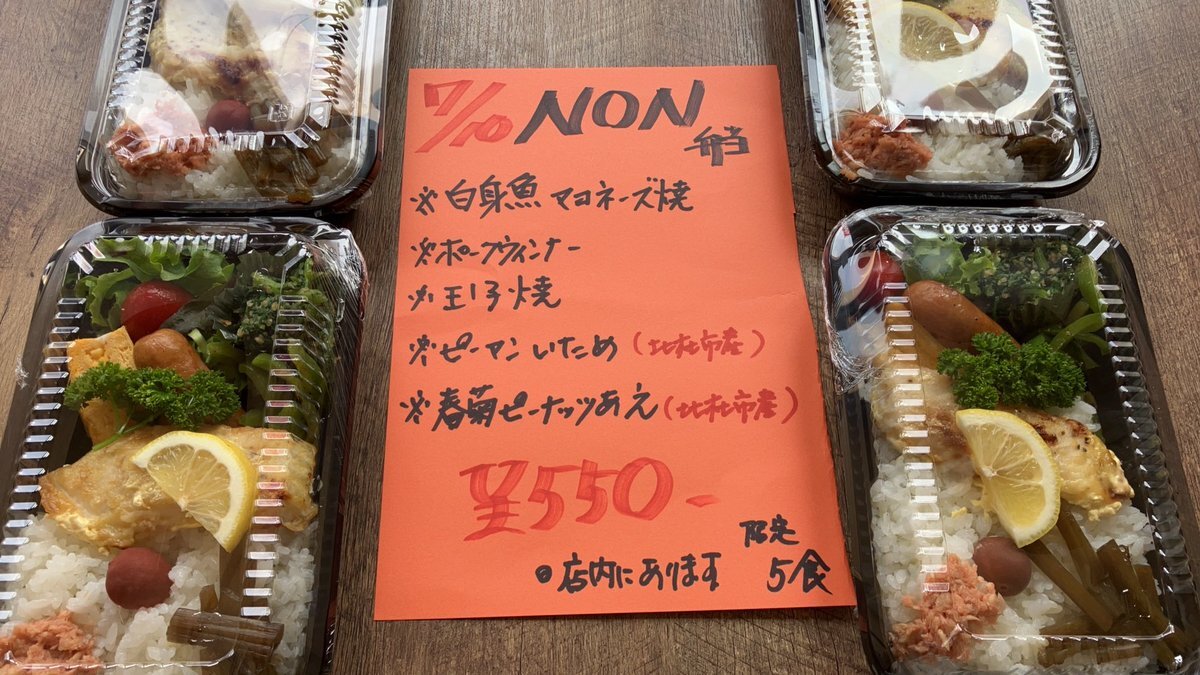 7/10 NON弁当
※白身魚マヨネーズ焼
※ポークウィンナー
※玉子焼
※ピーマンいため(北杜市産)
※春菊ピーナッツあえ(北杜市産)
¥550-
◦店内にあります 限定5食